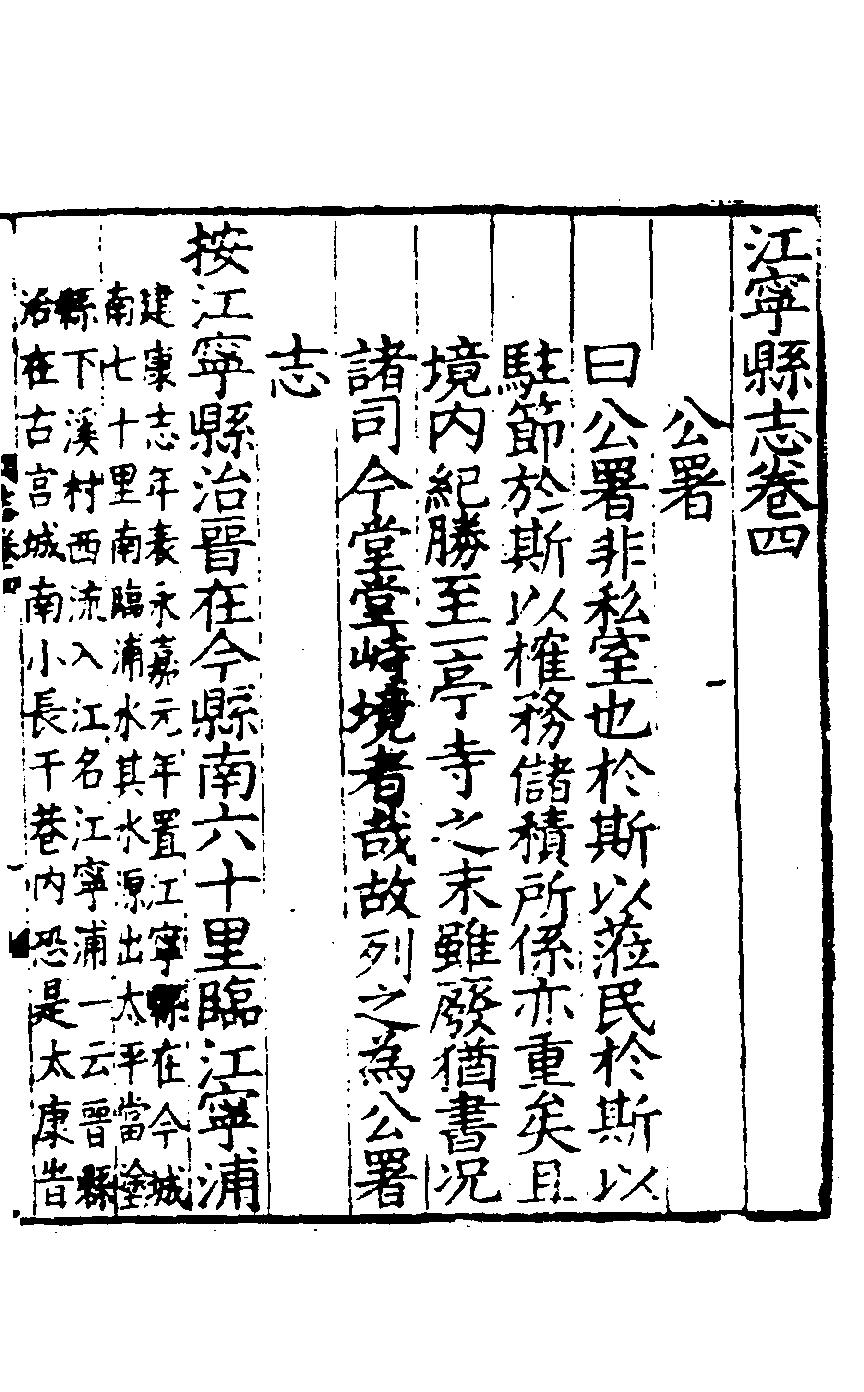 江寧縣志卷四
公署
曰公署非私室也於斯以蒞民於斯以
駐節於斯以榷務儲積所係亦重矣且
境内紀勝至一亭寺之末雖廢猶書况
諸司今堂堂峙境者哉故列之為公署
志
按江寧縣治晉在今縣南六十里臨江寧浦
建康志年表永嘉元年置江寧縣在今城
南七十里南臨浦水其水源出太平當塗
縣下溪村西流入江名江寧浦一云晉縣
治在古宫城南小長干巷内恐是太康旹